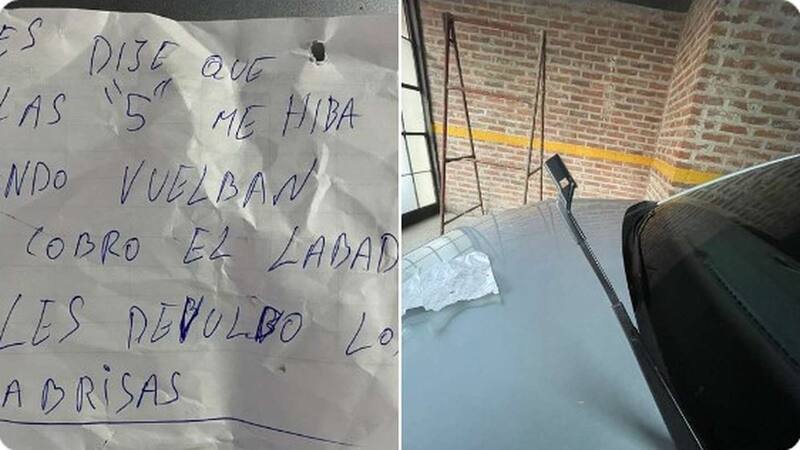 ES DIJE QUE
LAS "5" ME HIBA
NDO VUELBAN
COBRO EL LABAD
LES DEVULBO LO
ABRISAS